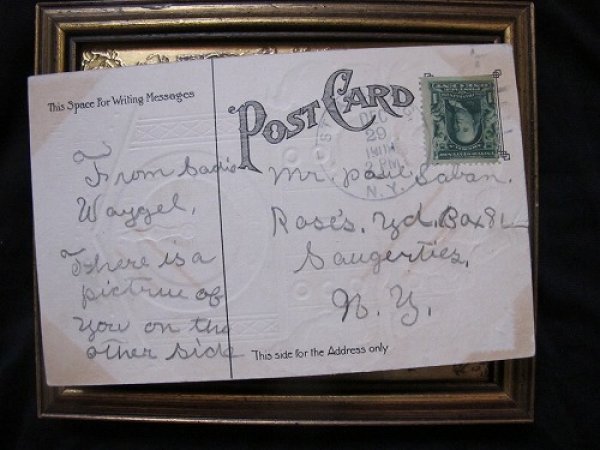 This Space For Writing Messages
POST CARD
DEC
29
2 PM
N.Y.
From Sadie
Waygel.
There is a
pictrue of
you on the
other side
Mr. Paul Saban.
Rose's. Yd. Box 81
Saugerties,
N. Y.
This side for the Address only